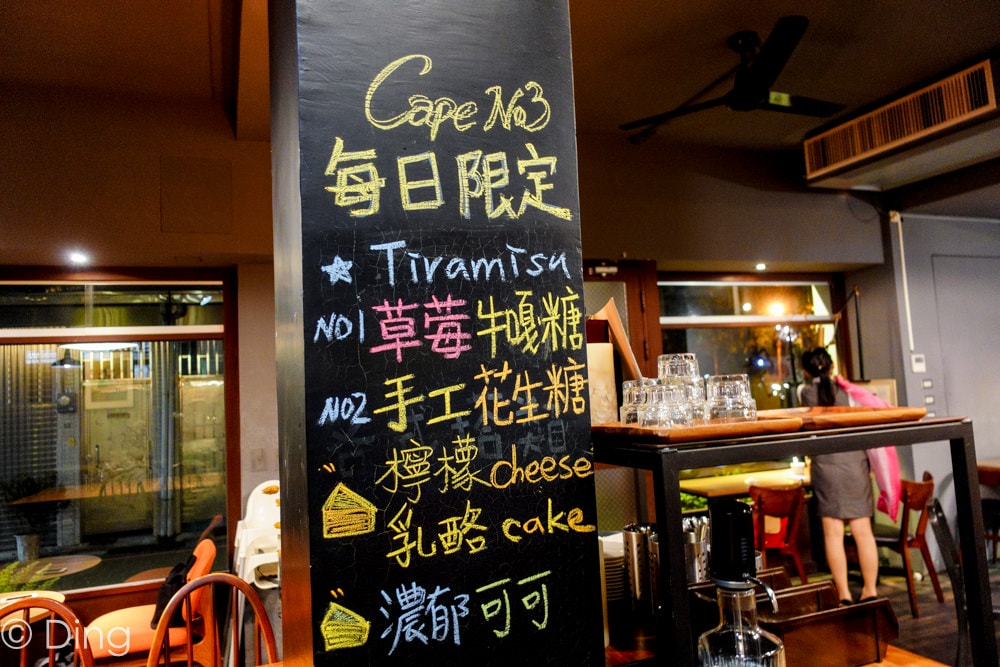 Cape No3
每日限定
Tiramisu
NO1 草莓牛嘎糖
NO2 手工花生糖
檸檬cheese
乳酪 cake
濃郁可可
© Ding